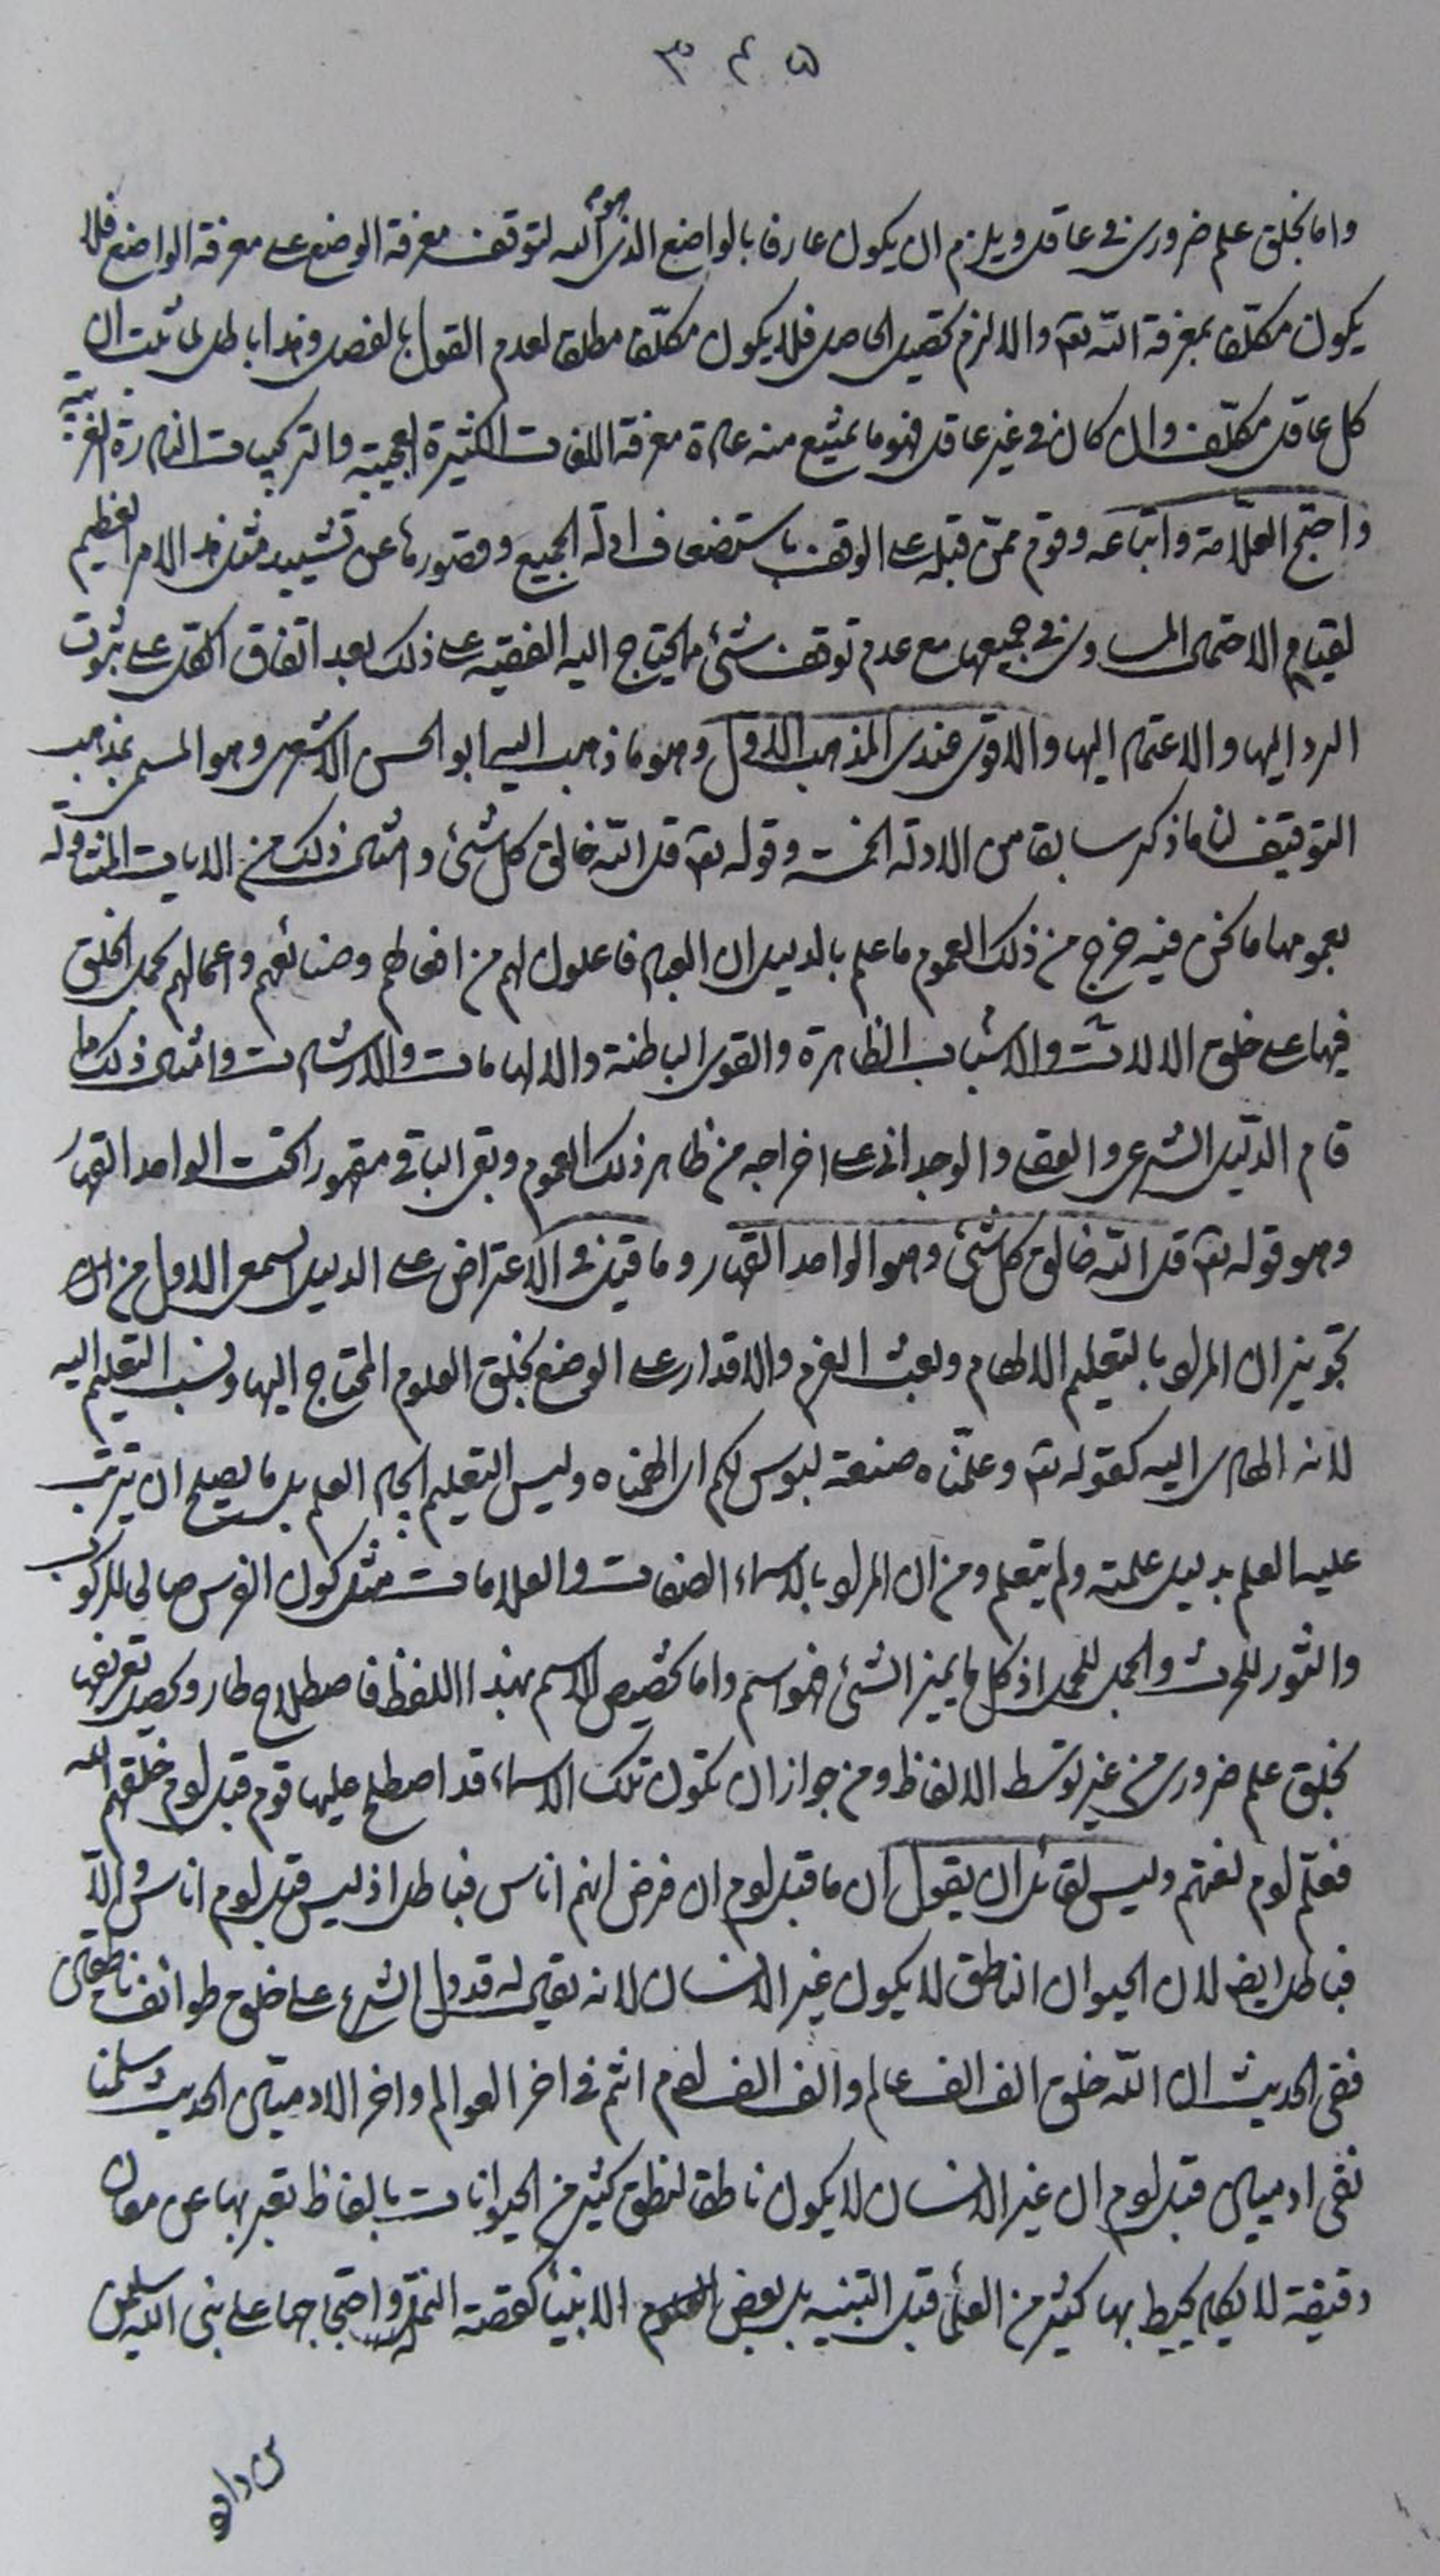 ٣٤٥
واما بخلق علم ضروري في عاقل ويلزم ان يكون عارفا بالواضع الذي هو الله لتوقف معرفة الوضع على معرفة الواضع فلا
يكون مكلّفا بمعرفة الله تع والا لزم تحصيل الحاصل فلا يكون مكلّفا مطلقا لعدم القول بالفصل وهذا باطل لما ثبت ان
كل عاقل مكلّف وان كان في غير عاقل فهو ما يمتنع منه عادة معرفة اللغات الكثيرة العجيبة والتركيبات النادرة الغريبة
واحتج العلّامة واتباعه وقوم ممّن قبله على الوقف باستضعاف ادلّة الجميع وقصورها عن تشييد مثل هذا الامر العظيم
لقيام الاحتمال المساوي في جميعها مع عدم توقف شئ مما يحتاج اليه الفقيه على ذلك بعد اتفاق الكل على ثبوت
الرد اليها والاعتماد اليها والاقوى عندي المذهب الاول وهو ما ذهب اليه ابو الحسن الاشعري وهو المسمى بمذهب
التوقيف لنا ما ذكر سابقا من الادلة الخمسة وقوله تع قل الله خالق كل شئ وامثال ذلك من الايات المتناولة
بعمومها ما نحن فيه خرج من ذلك العموم ما علم بالدليل ان العباد فاعلون لهم من افعالهم وصنائعهم واعمالهم بحمل الخلق
فيها على خلق الالات والاسباب الظاهرة والقوى الباطنة والالهامات والارشادات وامثال ذلك مما
قام الدّليل الشرعي والعقلي والوجداني على اخراجه من ظاهر ذلك العموم وبقي الباقي مقهورا تحت الواحد القهار
وهو قوله تع قل الله خالق كل شئ وهو الواحد القهار وما قيل في الاعتراض على الدليل السمعي الاول من ان
تجويز ان المراد بالتعليم الالهام وبعث العزم والاقدار على الوضع بخلق العلوم المحتاج اليها ونسب التعليم اليه
لانه الهادي اليه كقوله تع وعلّمناه صنعة لبوس لكم اي الهمناه وليس التعليم ايجاد العلم بل ما يصلح ان يترتب
عليه العلم بدليل علمته ولم يتعلم ومن ان المراد بالاسماء الصفات والعلامات مثل كون الفرس صالحا للركوب
والثور للحرث والجمل للحمل اذ كل ما يميز الشئ فهو اسم واما تخصيص الاسم بهذا اللفظ فاصطلاح طار ويحصل تعريفها
بخلق علم ضروري من غير توسط الالفاظ ومن جواز ان تكون تلك الاسماء قد اصطلح عليها قوم قبل ادم خلقهم الله
فعلّم ادم لغتهم وليس لقائل ان يقول ان ما قبل ادم ان فرض انهم اناس فباطل اذ ليس قبل ادم اناس والّا
فباطل ايضا لان الحيوان الناطق لا يكون غير الانسان لانه يقال له قد دل الشرع على خلق طوائف ناطقين
ففي الحديث ان الله خلق الف الف عالم والف الف ادم انتم في اخر العوالم واخر الادميّين الحديث وسلمنا
نفى ادميين قبل ادم ان غير الانسان لا يكون ناطقا لنطق كثير من الحيوانات بالفاظ تعبر بها عن معان
دقيقة لا يكاد يحيط بها كثير من العلماء قبل التنبيه بل بعض الانبياء كقصة النملة واحتجاجها على نبى الله سليمن
بن داود